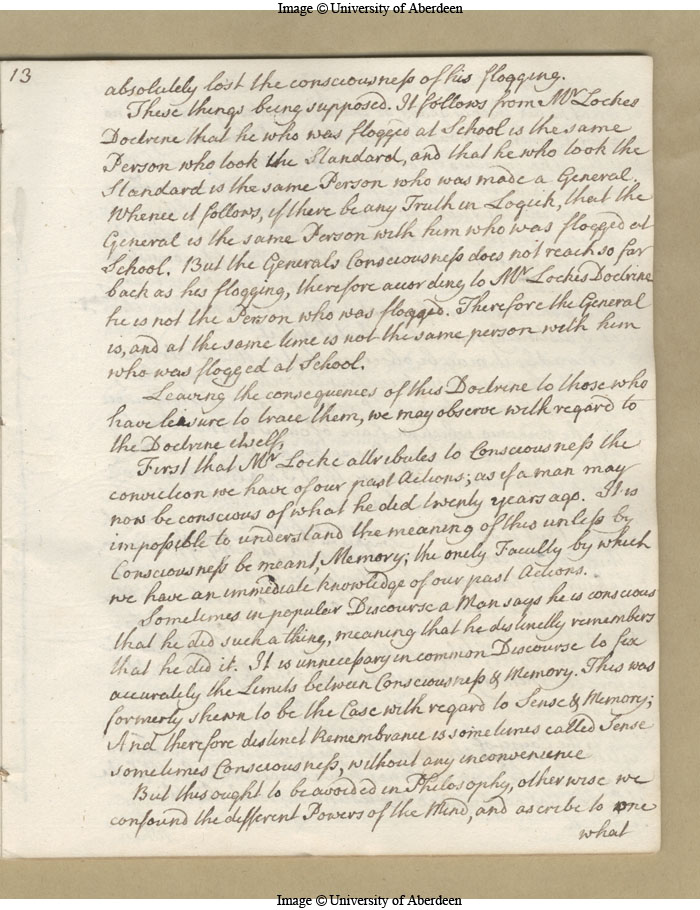 Image © University of Aberdeen
13
absolutely lost the consciousness of his flogging.
These things being supposed. It follows from Mr Lockes
Doctrine that he who was flogged at School is the same
Person who took the Standard, and that he who took the
Standard is the same Person who was made a General.
Whence it follows, if there be any Truth in Logick, that the
General is the same Person with him who was flogged at
School. But the Generals Consciousness does not reach so far
back as his flogging, therefore according to Mr Lockes Doctrine
he is not the Person who was flogged. Therefore the General
is, and at the same time is not the same person with him
who was flogged at School.
Leaving the consequences of this Doctrine to those who
have leisure to trace them, we may observe with regard to
the Doctrine itself,
First that Mr Locke attributes to Consciousness the
conviction we have of our past Actions; as if a man may
now be conscious of what he did twenty years ago. It is
impossible to understand the meaning of this unless by
Consciousness be meant, Memory; the only Faculty by which
we have an immediate knowledge of our past Actions.
Sometimes in popular Discourse a Man says he is conscious
that he did such a thing, meaning that he distinctly remembers
that he did it. It is unnecessary in common Discourse to fix
accurately the Limits between Consciousness & Memory. This was
formerly shewn to be the Case with regard to Sense & Memory;
And therefore distinct Remembrance is sometimes called Sense
sometimes Consciousness, without any inconvenience
But this ought to be avoided in Philosophy, otherwise we
confound the different Powers of the Mind, and ascribe to one
what
Image © University of Aberdeen